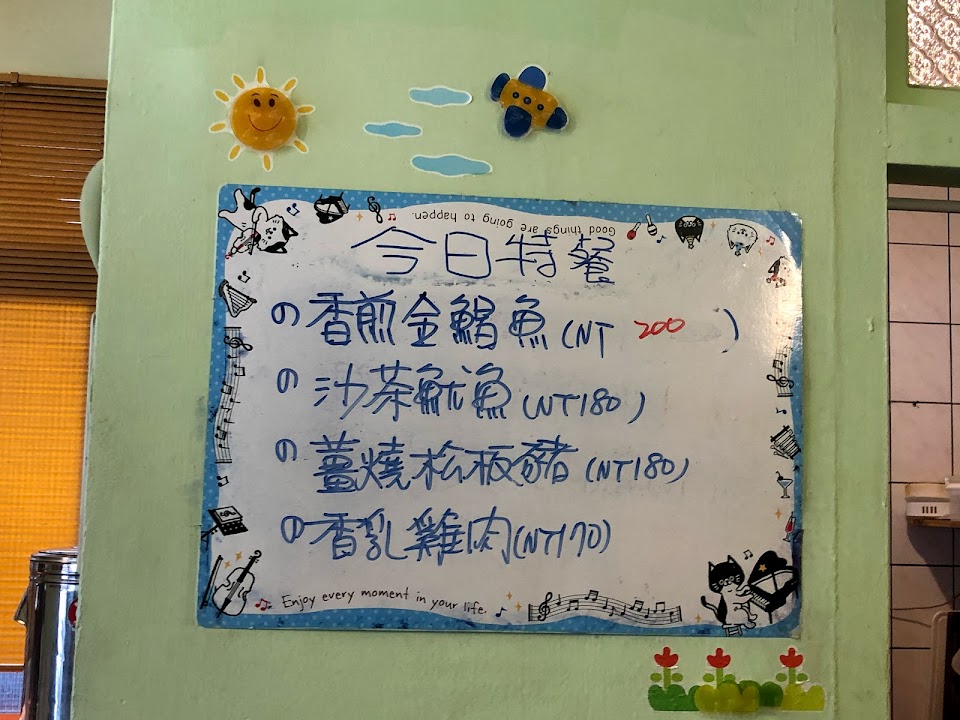 Good things are going to happen.
今日特餐
の香煎金鯧魚(NT 200 )
の沙茶魷魚(NT180)
の薑燒松板豬(NT180)
の香乳雞肉(NT170)
Enjoy every moment in your life.